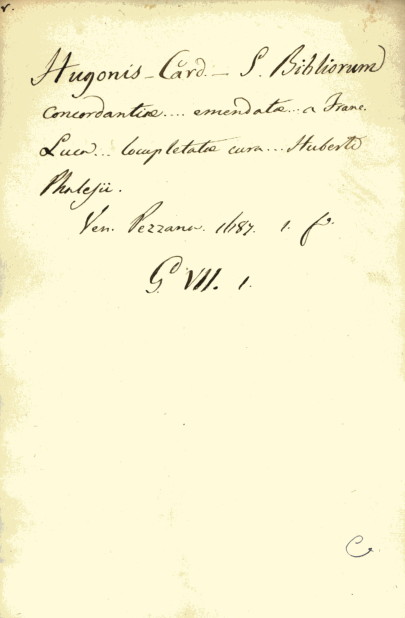 v.
Hugonis - Card. - S. Bibliorum
Concordantiæ .... emendatæ ... a Franc.
Luca ... locupletatæ cura ... Huberti
Phalesii.
Ven. Pezzana. 1687. 1. f.
G. VII. 1.
C